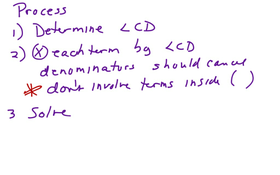 Process
1) Determine LCD
2) (x) each term by LCD
denominators should cancel
* don't involve terms inside ( )
3 Solve